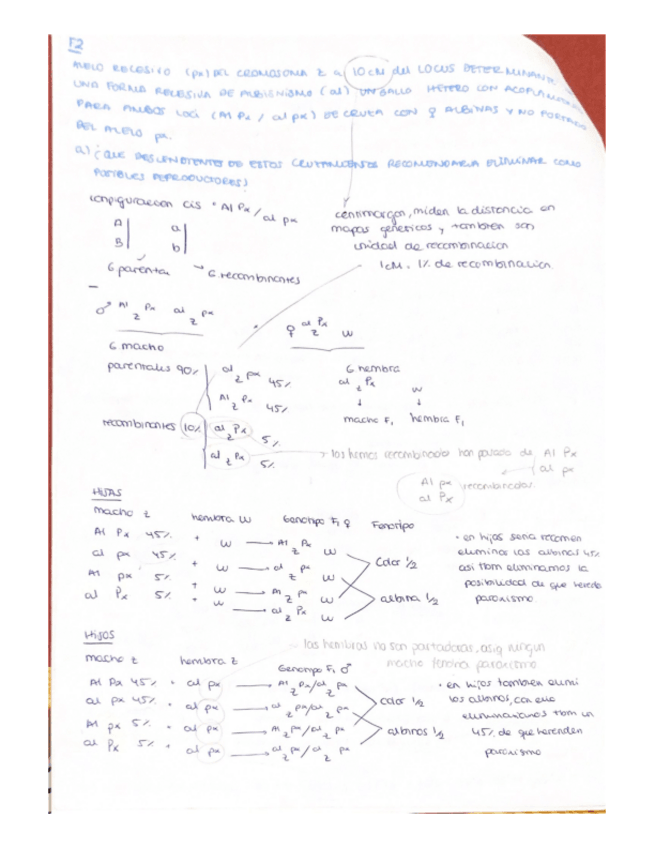 T2
GELO RECESIVO (px) DEL CROMOSOMA Z a 10 cM del LOCUS DETERMINANTE
UNA FORMA RECESIVA DE ALBINISMO (al) UN GALLO HETERO CON ACOPLAMIENTO
PARA AMBOS LOCI (Al Px / al px) SE CRUZA CON ♀ ALBINAS Y NO
DEL px.
a) ¿QUE DESCENDIENTES DE ESTOS CRUZAMIENTOS RECOMENDARIA ELIMINAR COMO
POSIBLES REPRODUCTORES?
configuracion cis " Al Px / al px
A a
B b
G parental → G recombinantes
centimorgan, miden la distancia en
mapas geneticos y tambien son
unidad de recombinacion
1cM. 1% de recombinacion.
♂ Al z Px al z px
♀ al z Px w
G macho
parentales 90%
al z px 45%
Al z Px 45%
recombinantes 10%
al z Px 5%
al z Px 5%
G hembra
al z Px w
↓ ↓
macho F1 hembra F1
→ los hemos recombinado han pasado de Al Px
al px
Al px recombinados.
al Px
HIJAS
macho z hembra w Genotipo F1 ♀ Fenotipo
Al Px 45% + w → Al z Px w
al px 45% + w → al z px w
Al px 5% + w → Al z px w
al Px 5% + w → al z Px w
Color 1/2
albina 1/2
• en hijas seria recomen
eliminar las albinas 45%
asi tbm eliminamos la
posibilidad de que hereda
paroxismo.
HIJOS
las hembras no son portadoras, asiq ningun
macho tendria paroxismo
macho z hembra z Genotipo F1 ♂
Al Px 45% + al px → Al z Px / al z px
al px 45% + al px → al z px / al z px
Al px 5% + al px → Al z px / al z px
al Px 5% + al px → al z px / al z px
Color 1/2
albinos 1/2
• en hijos tambien elimi
los albinos, con ello
eliminariamos tbm un
45% de que hereden
paroxismo